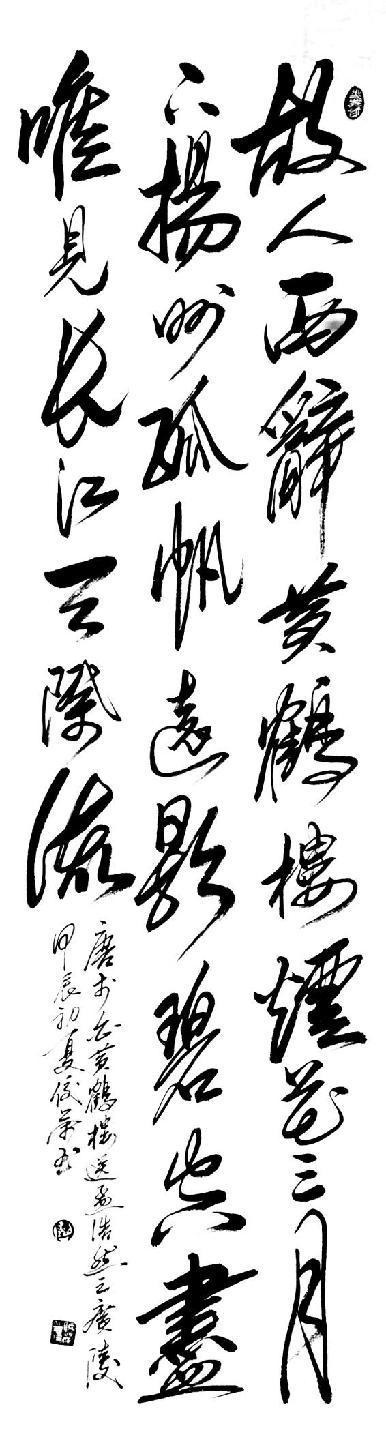 故人西辭黄鶴樓煙花三月
下揚州孤帆遠影碧空盡
唯見長江天際流
唐李白黄鶴樓送孟浩然之廣陵
甲辰初夏俊榮书